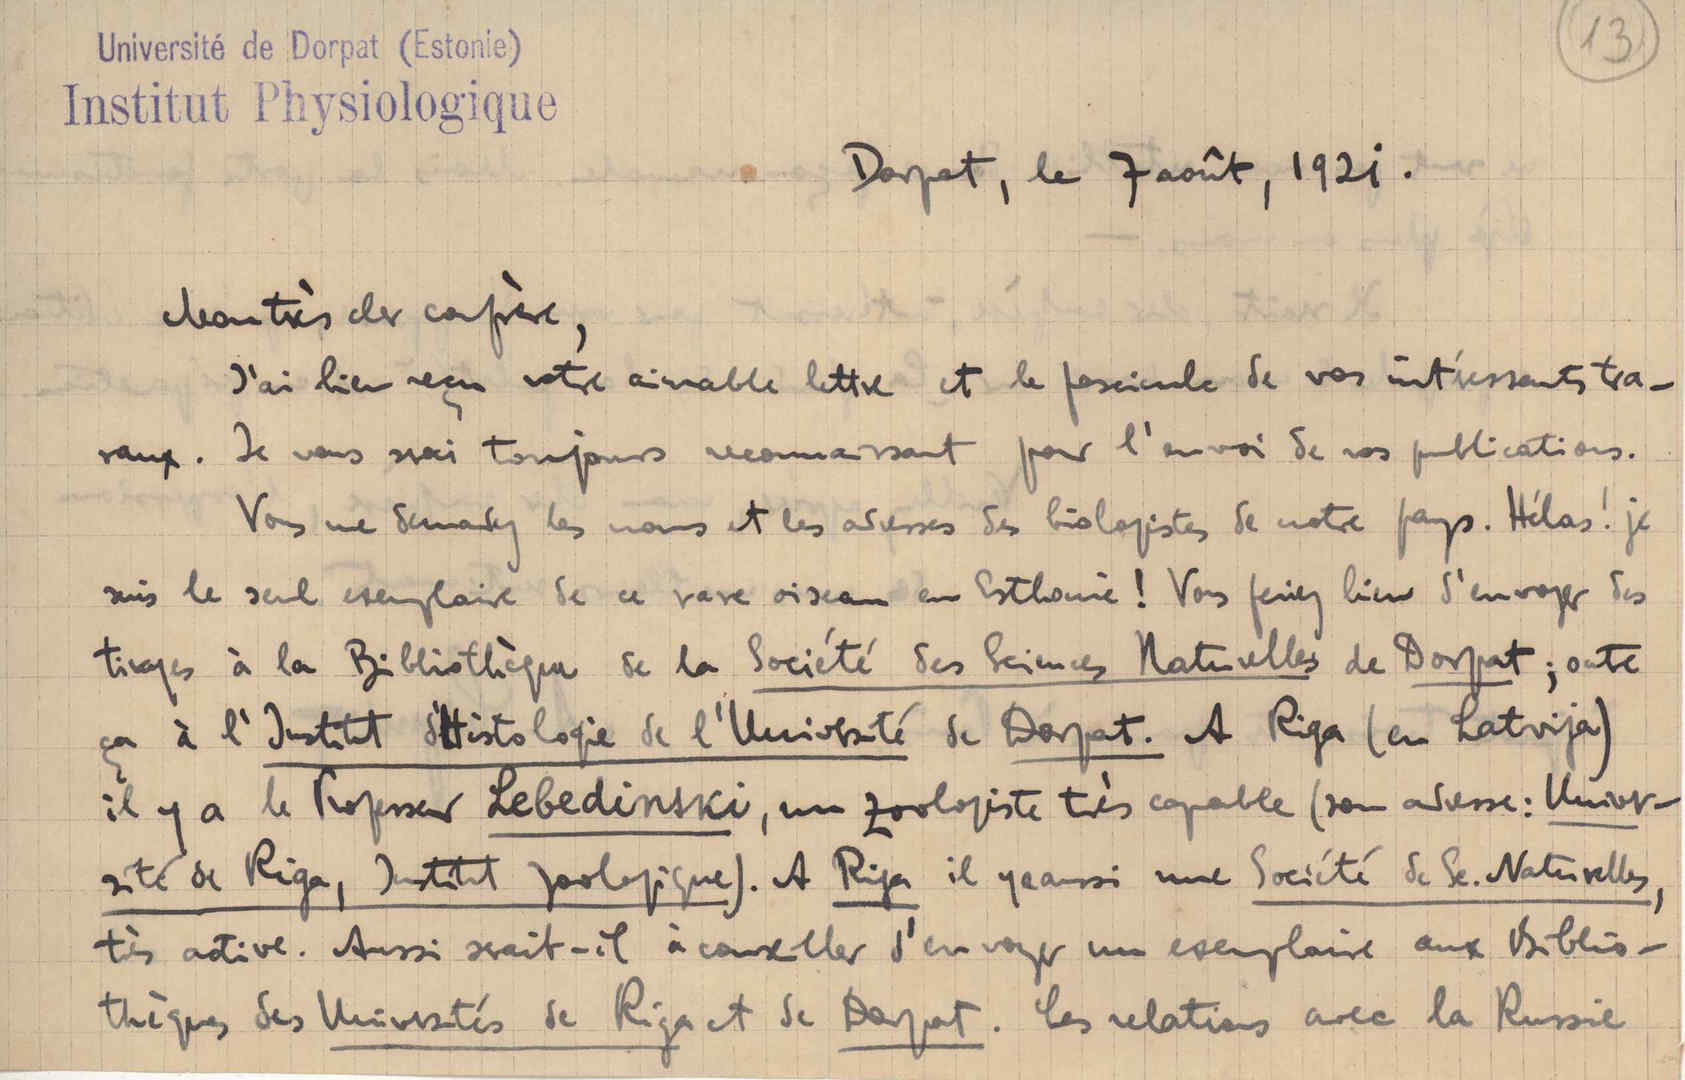 Université de Dorpat (Estonie)
Institut Physiologique
13
Dorpat, le 7 août, 1921.
Mon très cher confrère,
J'ai bien reçu votre aimable lettre et le fascicule de vos intéressants tra-
vaux. Je vous serai toujours reconnaissant pour l'envoi de vos publications.
Vous me demandez les noms et les adresses des biologistes de notre pays. Hélas! je
suis le seul exemplaire de ce rare oiseau en Esthonie! Vous feriez bien d'envoyer des
tirages à la Bibliothèque de la Société des Sciences Naturelles de Dorpat; outre
ça à l'Institut d'Histologie de l'Université de Dorpat. A Riga (en Latvija)
il y a le Professeur Lebedinski, un zoologiste très capable (son adresse: Univer-
sité de Riga, Institut zoologique). A Riga il y a aussi une Société de Sc. Naturelles,
très active. Aussi serait-il à conseiller d'envoyer un exemplaire aux Biblio-
thèques des Universités de Riga et de Dorpat. Les relations avec la Russie